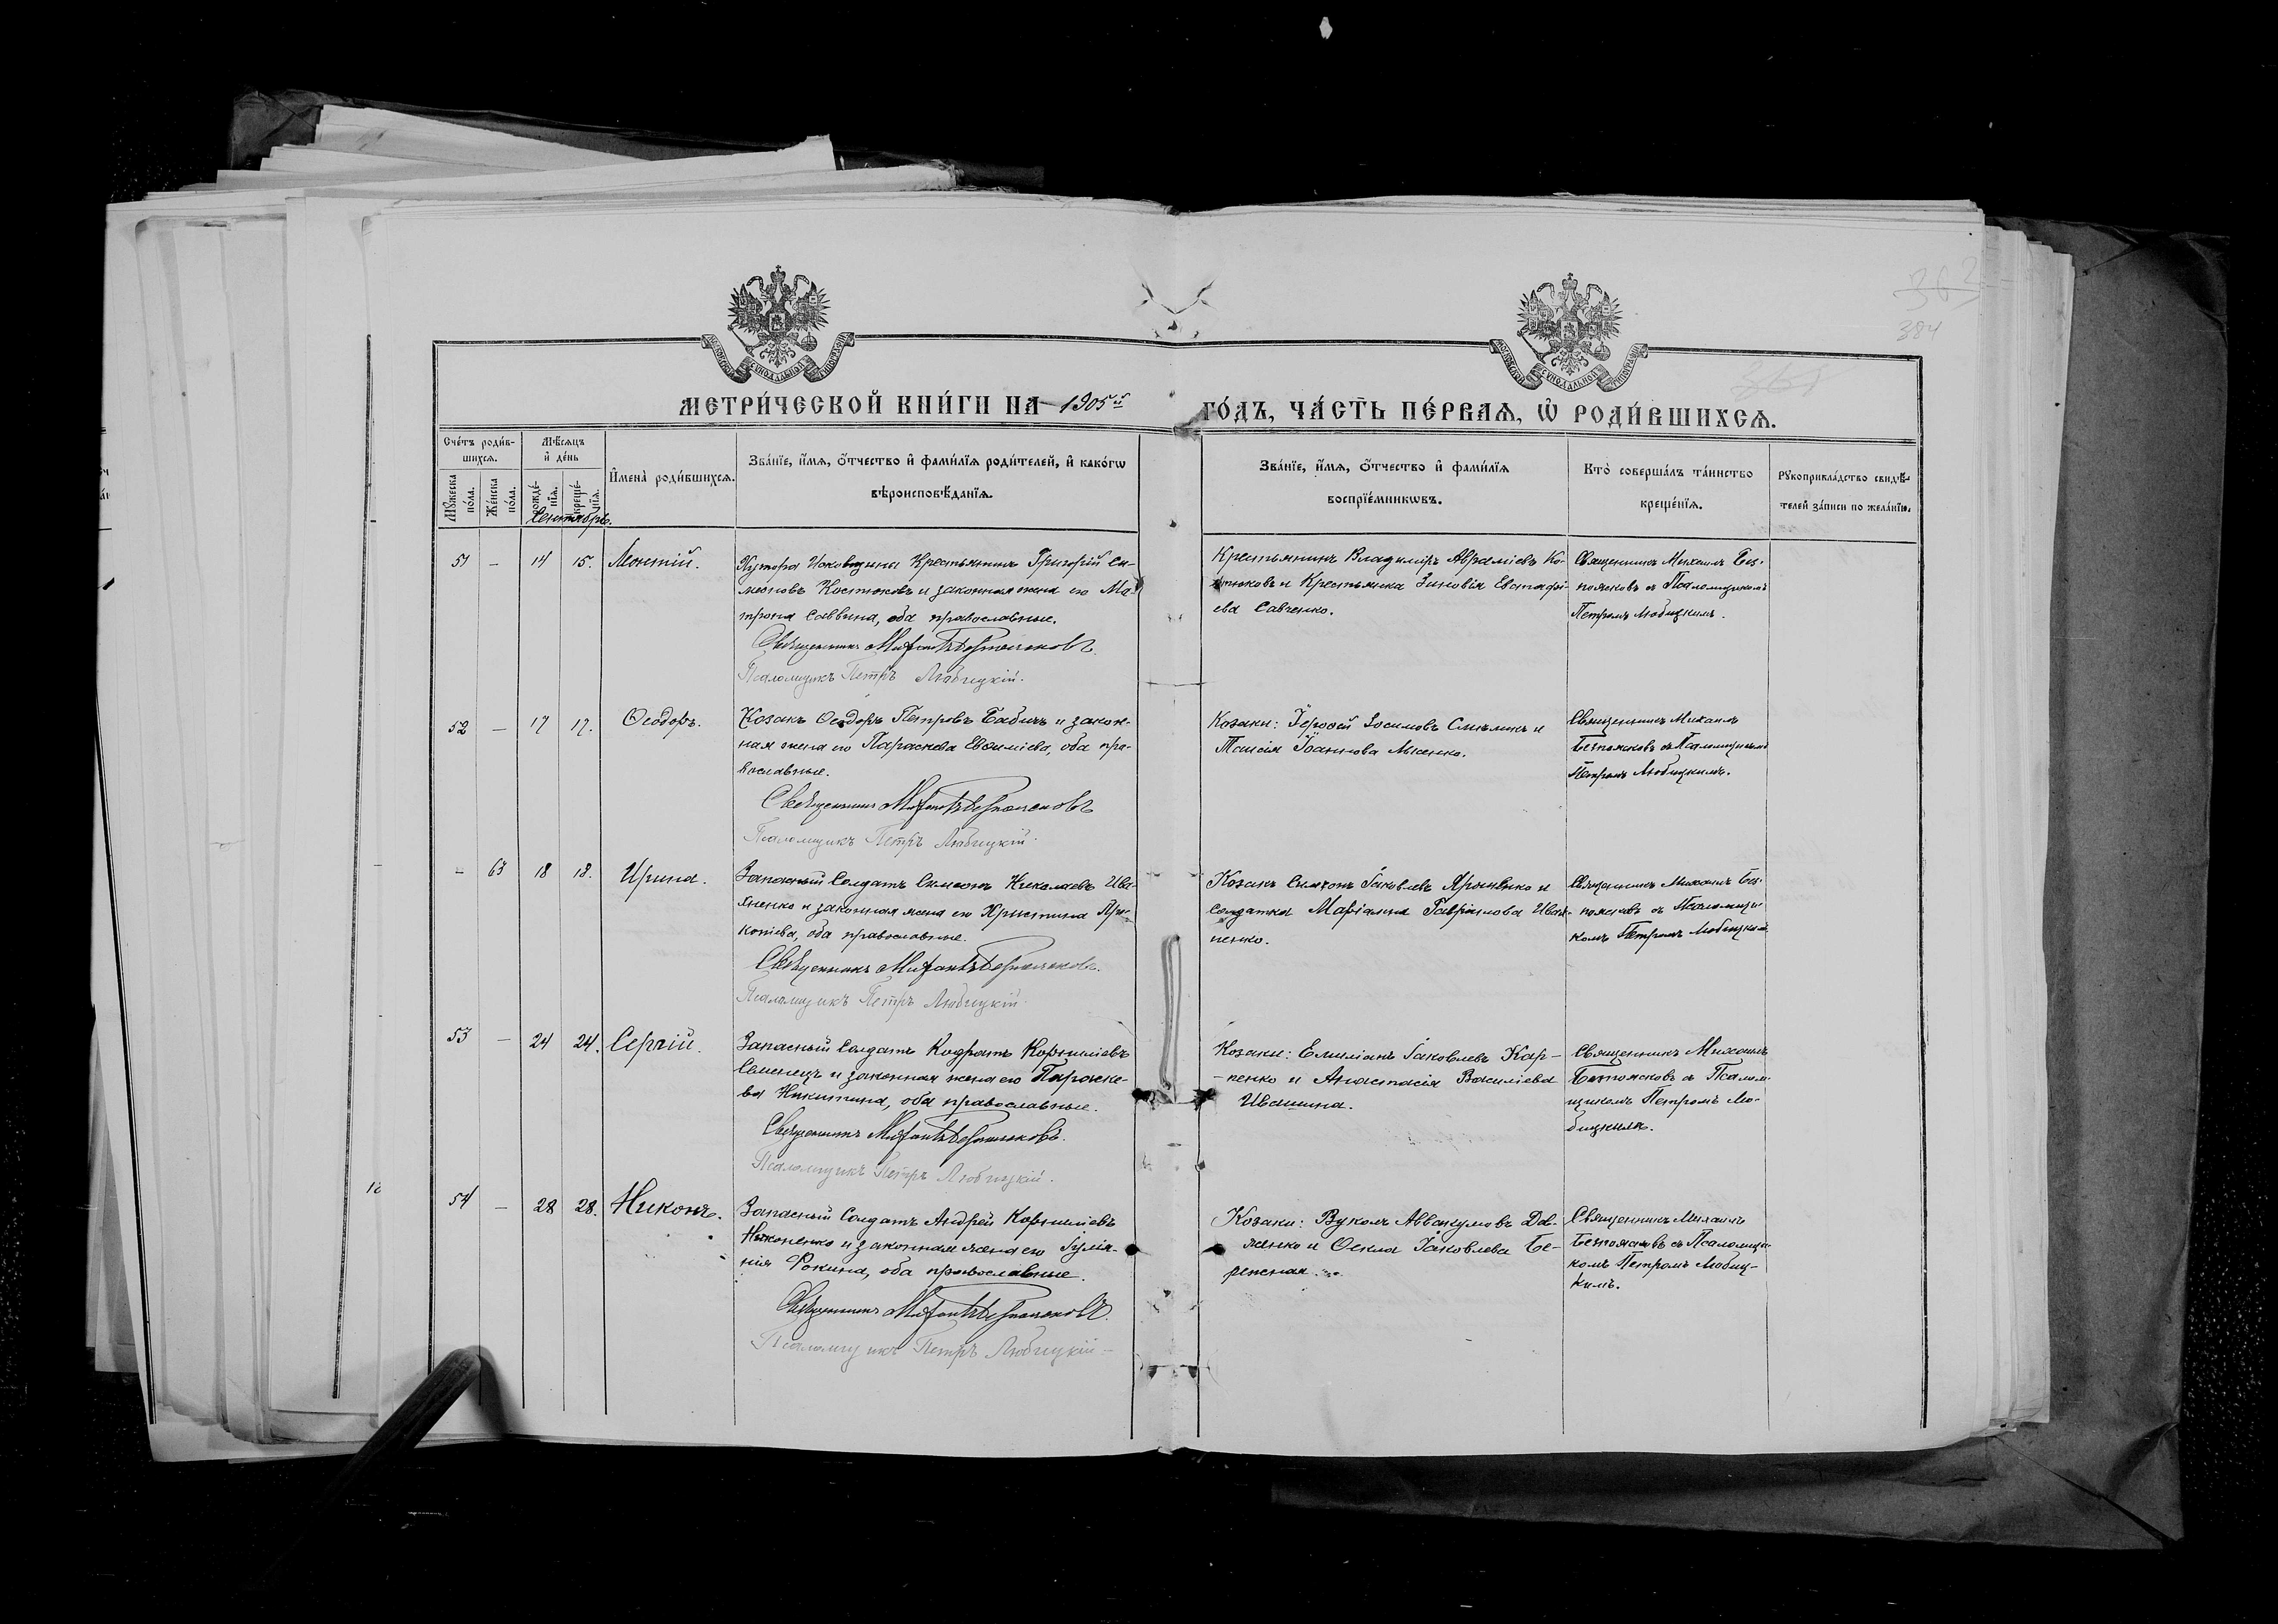 363
384
МОСКОВСКОЙ СѴНОДАЛЬНОЙ ТИПОГРАФІИ
МОСКОВСКОЙ СѴНОДАЛЬНОЙ ТИПОГРАФІИ
МЕТРИ́ЧЕСКОЙ КНИ́ГИ НА 1905й ГО́ДЪ, ЧА́СТЬ ПЕ́РВАѦ, Ѡ҆ РОДИ́ВШИХСѦ.
Сче́тъ роди́в-
шихсѧ.
Мꙋ́жеска
по́ла.
Же́нска
по́ла.
Мѣ́сѧцъ
и҆ де́нь
рожде́-
нїѧ.
креще́-
нїѧ.
И҆мена̀ роди́вшихсѧ.
Зва́нїе, и҆́мѧ, ѻ҆́тчество и҆ фами́лїѧ роди́телей, и҆ како́гѡ
вѣроисповѣ́данїѧ.
Зва́нїе, и҆́мѧ, ѻ҆́тчество и҆ фами́лїѧ
воспрїе́мникѡвъ.
Кто̀ соверша́лъ та́инство
креще́нїѧ.
Рꙋкоприкла́дство свидѣ́-
телей за́писи по жела́нїю.
Сентябрь.
51 – 14 15. Леонтій.
Хутора Исковщины Крестьянинъ Григорій Си-
меоновъ Костюковъ и законная жена его Ма-
трона Саввина, оба православные.
Священникъ Михаилъ Безпоясковъ.
Псаломщикъ Петръ Любицкій.
Крестьянинъ Владиміръ Авраміевъ Ко-
стюковъ и Крестьянка Зиновія Евстафі-
ева Савченко.
Священникъ Михаилъ Без-
поясковъ съ Псаломщикомъ
Петромъ Любицкимъ.
52 – 17 17. Ѳеодоръ.
Козакъ Ѳеодоръ Петровъ Бабичъ и закон-
ная жена его Параскева Евѳиміева, оба пра-
вославные.
Священникъ Михаилъ Безпоясковъ
Псаломщикъ Петръ Любицкій.
Козаки: Іероѳей Зосимовъ Смѣликъ и
Таисія Іоаннова Лысенко.
Священникъ Михаилъ
Безпоясковъ съ Псаломщикомъ
Петромъ Любицкимъ.
– 63 18 18. Ирина.
Запасный Солдатъ Симеонъ Николаевъ Ива-
ненко и законная жена его Христина Про-
копіева, оба православные.
Священникъ Михаилъ Безпоясковъ.
Псаломщикъ Петръ Любицкій
Козакъ Симеонъ Іаковлевъ Ярошенко и
Солдатка Маріамна Гавріилова Ива-
ненко.
Священникъ Михаилъ Без-
поясковъ съ Псаломщи-
комъ Петромъ Любицкимъ
53 – 24 24. Сергій.
Запасный Солдатъ Кодратъ Корниліевъ
Семенецъ и законная жена его Параске-
ва Никитина, оба православные.
Священникъ Михаилъ Безпоясковъ.
Псаломщикъ Петръ Любицкій.
Козаки: Емиліанъ Іаковлевъ Кар-
пенко и Анастасія Василіева
Ивашина.
Священникъ Михаилъ
Безпоясковъ съ Псалом-
щикомъ Петромъ Лю-
бицкимъ.
54 – 28 28. Никонъ.
Запасный Солдатъ Андрей Корниліевъ
Никоненко и законная жена его Іуліа-
нія Фокина, оба православные.
Священникъ Михаилъ Безпоясковъ.
Псаломщикъ Петръ Любицкій
Козаки: Вуколъ Аввакумовъ Дов-
женко и Ѳекла Іаковлева Бе-
режная.
Священникъ Михаилъ
Безпоясковъ съ Псаломщи-
комъ Петромъ Любиц-
кимъ.